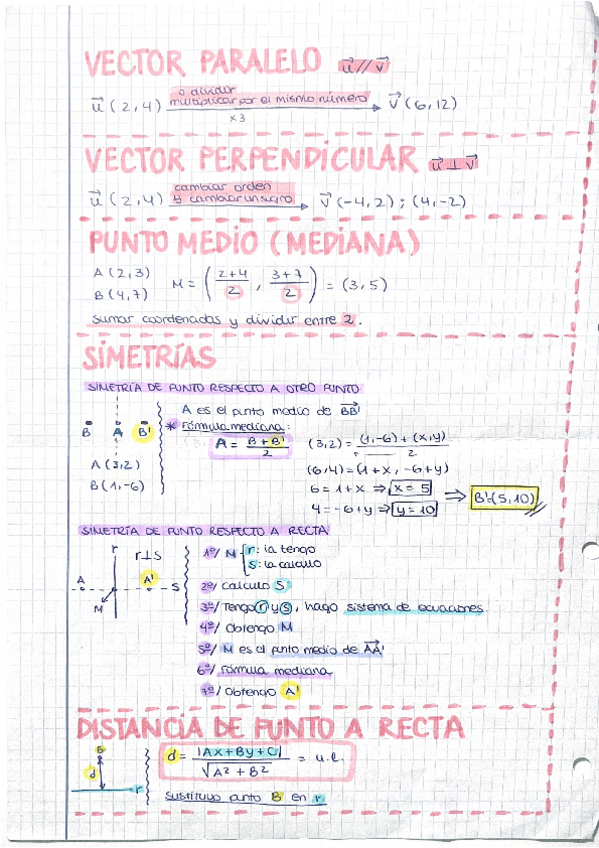 VECTOR PARALELO u⃗ // v⃗
o dividir
u⃗ (2,4) multiplicar por el mismo número v⃗ (6,12)
x3
VECTOR PERPENDICULAR u⃗ ⊥ v⃗
cambiar orden
u⃗ (2,4) y cambiar un signo v⃗ (-4,2) ; (4,-2)
PUNTO MEDIO (MEDIANA)
A (2,3)
B (4,7)
M = ( 2+4 / 2 , 3+7 / 2 ) = (3,5)
sumar coordenadas y dividir entre 2.
SIMETRÍAS
SIMETRÍA DE PUNTO RESPECTO A OTRO PUNTO
A es el punto medio de BB'
B A B' * Fórmula mediana:
A = B + B' / 2
(3,2) = (1,-6) + (x,y) / 2
A (3,2)
B (1,-6)
(6,4) = (1+x, -6+y)
6 = 1+x ⇒ x = 5
4 = -6+y ⇒ y = 10
⇒ B' = (5,10)
SIMETRÍA DE PUNTO RESPECTO A RECTA
r r⊥s
A A' s
M
1º/ M { r: la tengo
s: la calculo
2º/ calculo s
3º/ Tengo r y s, hago sistema de ecuaciones
4º/ Obtengo M
5º/ M es el punto medio de AA'
6º/ Fórmula mediana
7º/ Obtengo A'
DISTANCIA DE PUNTO A RECTA
B
d
r
d = |Ax + By + C| / √A² + B² = u.l.
sustituyo punto B en r